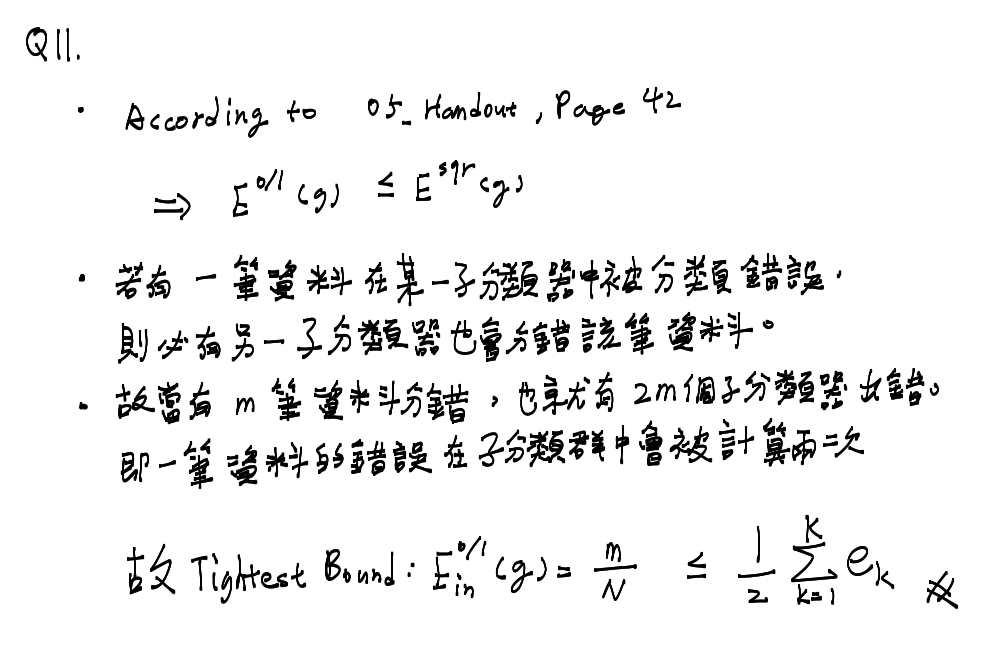 Q11.
· According to 05_Handout, Page 42
⇒ E^{0/1}(g) ≤ E^{sqr}(g)
· 若有一筆資料在某一子分類器中被分類錯誤,
則必有另一子分類器也會分錯該筆資料。
· 故當有 m 筆資料分錯,也就有 2m個子分類器出錯。
即一筆資料的錯誤在子分類群中會被計算兩次
故 Tightest Bound: E_{in}^{0/1}(g) = \frac{m}{N} ≤ \frac{1}{2} \sum_{k=1}^{K} e_k #